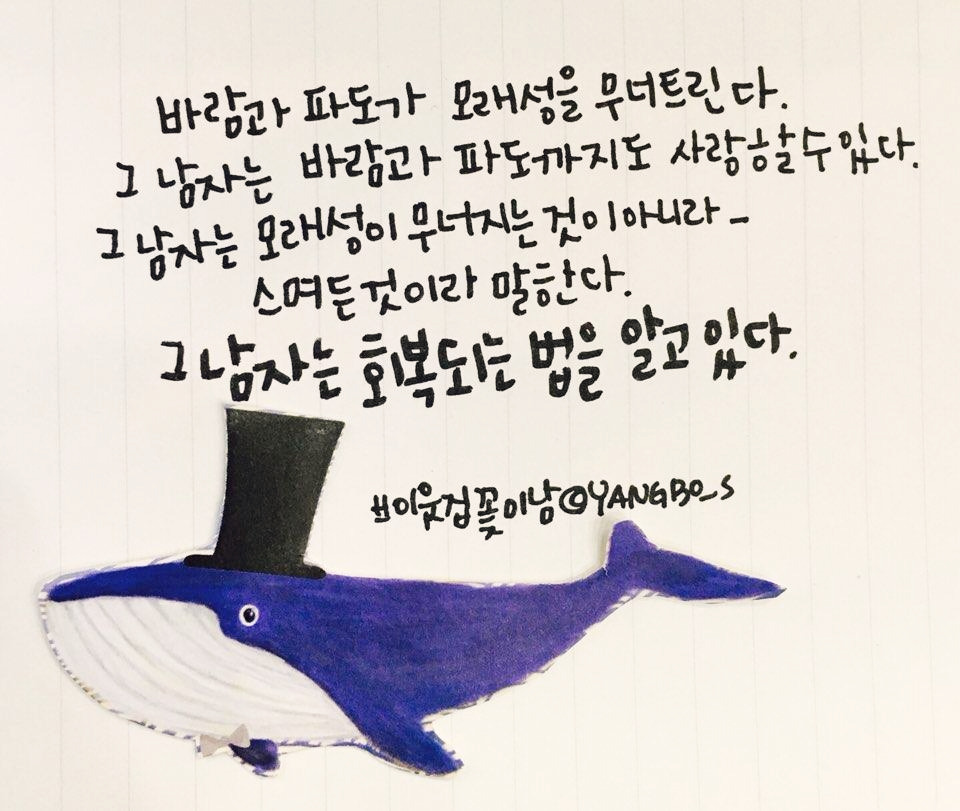 바람과 파도가 모래성을 무너트린다.
그 남자는 바람과 파도까지도 사랑할 수 있다.
그 남자는 모래성이 무너지는 것이 아니라 -
스며든 것이라 말한다.
그 남자는 회복되는 법을 알고 있다.
#이웃집꽃미남@YANGBO_S